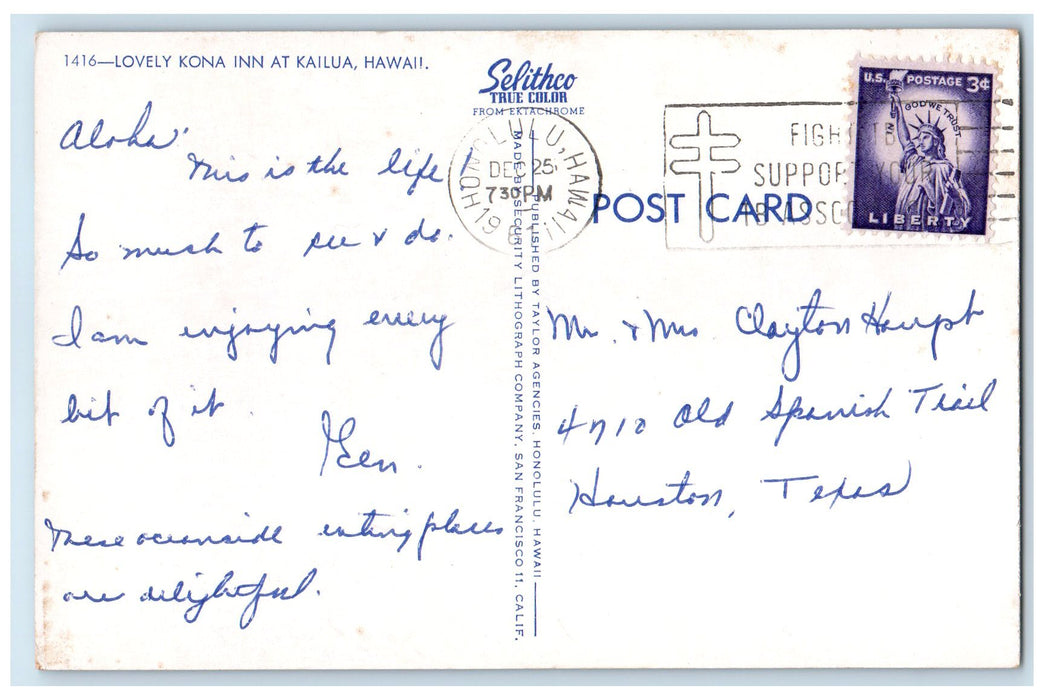 1416—LOVELY KONA INN AT KAILUA, HAWAII.
Selithco
TRUE COLOR
FROM EKTACHROME
Aloha.
This is the life!
So much to see & do.
I am enjoying every
bit of it.
Gen.
These oceanside eating places
are delightful.
MADE BY SECURITY LITHOGRAPH COMPANY, SAN FRANCISCO 11, CALIF.
PUBLISHED BY TAYLOR AGENCIES, HONOLULU, HAWAII
HONOLULU, HAWAII
DEC 25
730PM
FIGHT TB
SUPPORT YOUR
TB ASSO
POST CARD
U.S. POSTAGE 3¢
IN GOD WE TRUST
LIBERTY
Mr. & Mrs Clayton Haupt
4710 Old Spanish Trail
Houston, Texas